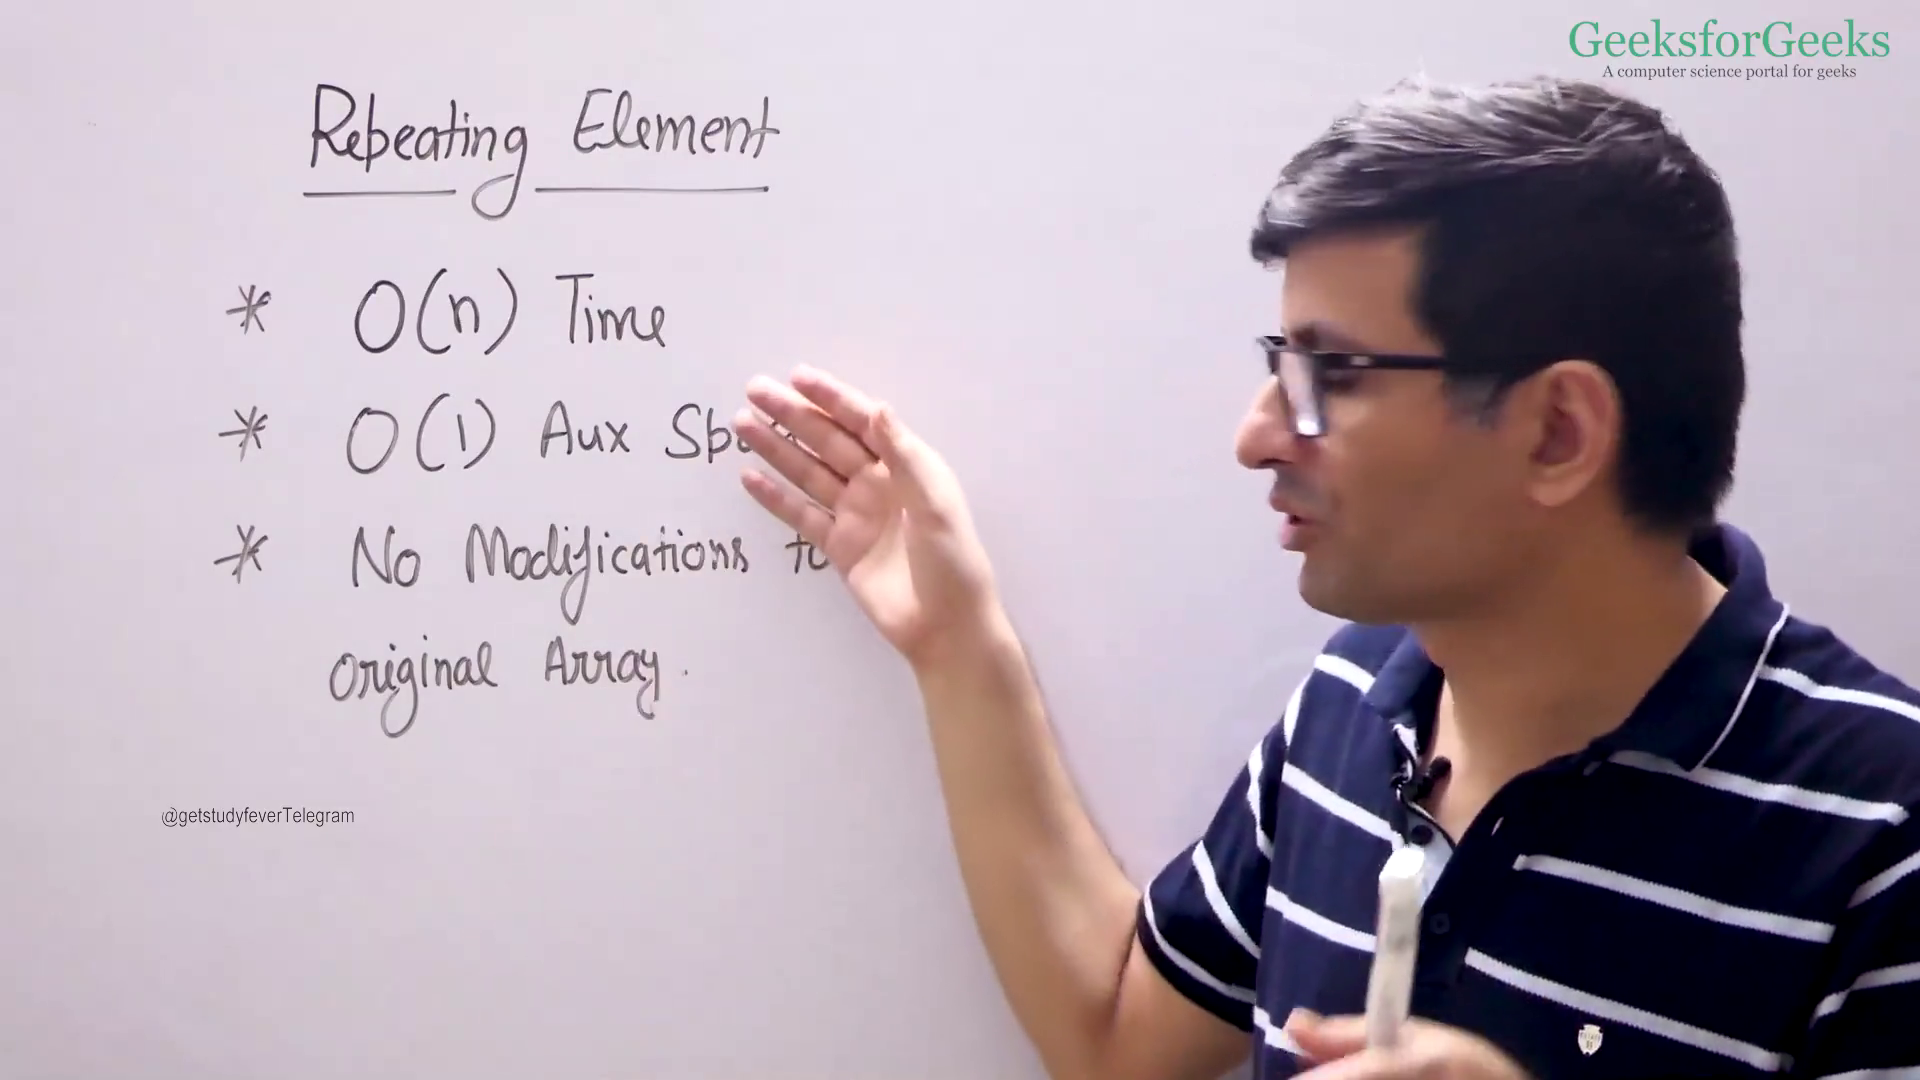 GeeksforGeeks
A computer science portal for geeks
Repeating Element
* O(n) Time
* O(1) Aux
* No Modifications to
original Array.
@getstudyfeverTelegram